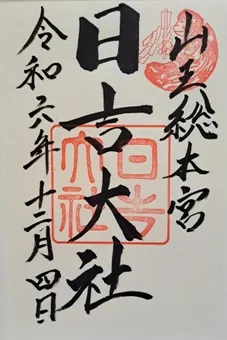 山王総本宮
日吉大社
日吉大社
令和六年十二月四日